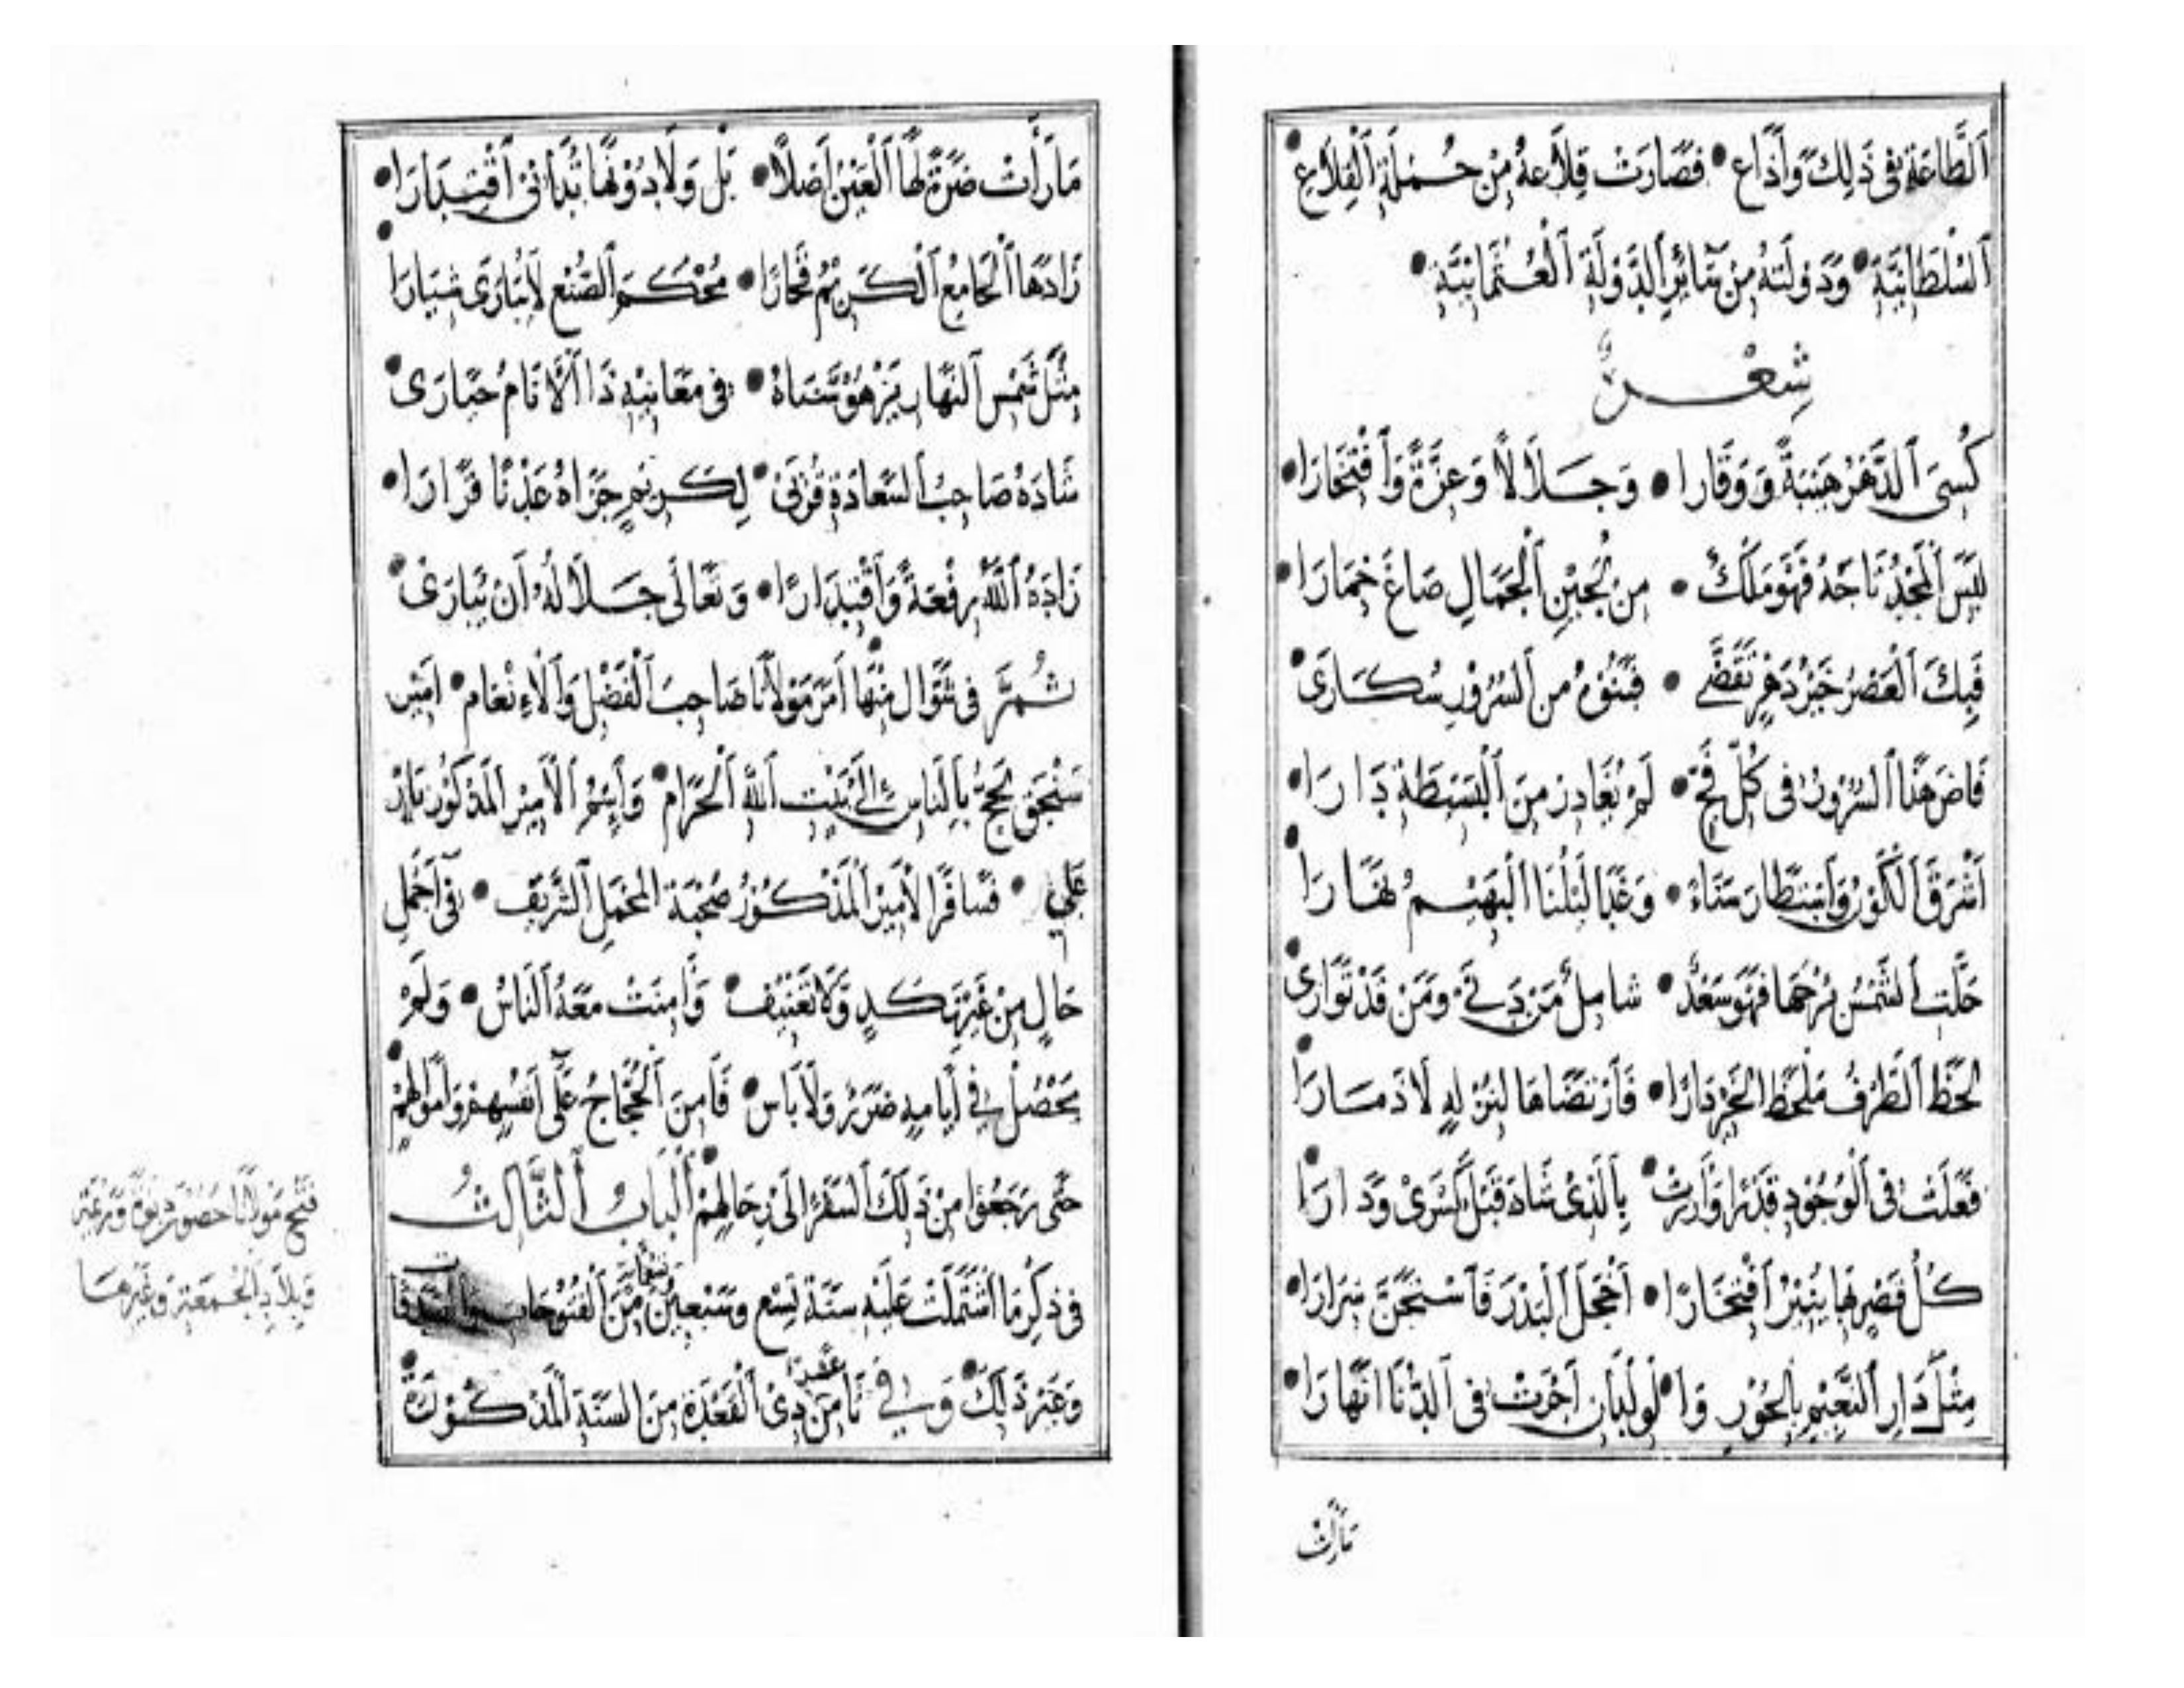 اَلطَّاعَةِ فِي ذَلِكَ وَأَذَاعَ • فَصَارَتْ قِلَاعَهُ مِنْ جُمْلَةِ اَلْقِلَاعِ
اَلسُّلْطَانِيَّةِ • وَدَوْلَتَهُ مِنْ سَائِرِ اَلدَّوْلَةِ اَلْعُثْمَانِيَّةِ •
شِعْرٌ
كُسِيَ اَلدَّهْرُ هَيْبَةً وَوَقَارا • وَجَلَالًا وَعِزَّةً وَاَفْتِخَارَا •
لَبِسَ اَلْمَجْدُ تَاجَهُ فَهْوَ مَلْكٌ • مِنْ لُجَيْنِ اَلْجَمَالِ صَاغَ خِمَارَا •
فِيكَ اَلْعَصْرُ خَيْرُ دَهْرٍ تَقَضَّى • مِنَ السُّرُورِ سُكَارَى •
فَاضَ هَذَا اَلسُّرُورُ فِي كُلِّ فَجٍّ • لَمْ يُغَادِرْ مِنَ اَلْبَسِيطَةِ دَارَا •
اَشْرَقَ اَلْكَوْنُ وَاَسْتَطَارَ سَنَاءً • وَغَدَا لَيْلُنَا اَلْبَهِيمُ نَهَارَا •
حَلَّتِ اَلشَّمْسُ بُرْجَهَا فَهْوَ سَعْدٌ • شَامِلٌ مَنْ دَنَى وَمَنْ قَدْ تَوَارَى •
لَحَظَ اَلطَّرْفُ مَلْحَظَ اَلْحَزْمِ دَارًا • فَاَرْتَضَاهَا لِنُزْلِهِ لَا ذَمَارَا •
فَعَلَتْ فِي اَلْوُجُودِ قَدْرًا وَاَزْرَتْ • بِاَلَّذِي شَادَ قَبْلُ كِسْرَى وَدَارَا •
كُلُّ قَصْرٍ بِهَا يُنِيرُ اَفْتِخَارًا • اَخْجَلَ اَلْبَدْرَ فَاَسْتَجَنَّ سِرَارَا •
مِثْلَ دَارِ اَلنَّعِيمِ بِالْحُورِ وَا • لْوِلْدَانِ اَجْرَتْ فِي اَلدُّنَا اَنْهَارَا •
مَارَأَتْ
مَارَأَتْ ضَرَّةً لَهَا اَلْعَيْنُ اَصْلًا • بَلْ وَلَا دُوْنَهَا تُدَانِيْ اَقْتِدَارَا •
زَادَهَا اَلْجَامِعُ اَلْكَرِيْمُ فَخَارًا • مُحْكَمَ اَلصُّنْعِ لَا يُبَارَى شِيَارَا •
مِثْلَ شَمْسِ اَلنَّهَارِ يَزْهُوْ سَنَاهُ • فِي مَعَانِيْهِ ذَا اَلْاَنَامُ حَيَارَى •
شَادَهُ صَاحِبُ اَلسَّعَادَةِ قُرْبَى • لِكَرِيْمٍ جَزَاهُ عَدْنًا قَرَارَا •
زَادَهُ اَللّٰهُ رِفْعَةً وَاَقْتِدَارًا • وَتَعَالَى جَلَالُهُ اَنْ يُبَارَى •
ثُمَّ فِي شَوَّال مِنْهَا اَمَرَ مَوْلَانَا صَاحِبَ اَلْفَضْلِ وَاَلْاِنْعَامِ • اَمِيْرَ
سَنْجَق يَحُجُّ بِالنَّاسِ اِلَى بَيْتِ اَللّٰهِ اَلْحَرَامِ • وَاِسْمُ اَلْاَمِيْرِ اَلْمَذْكُوْرِ
عَلِي • فَسَافَرَ اَلْاَمِيْرُ اَلْمَذْكُوْرُ صُحْبَةَ اَلْمَحْمَلِ اَلشَّرِيْفِ • فِي اَجْمَلِ
حَالٍ مِنْ غَيْرِ نَكَدٍ وَلَا تَعْنِيْفٍ • وَاَمِنَتْ مَعَهُ اَلنَّاسُ • وَلَمْ
يَحْصُلْ فِي اَيَّامِهِ ضَرَرٌ وَلَا بَاس • فَاَمِنَ اَلْحُجَّاجُ عَلَى اَنْفُسِهِمْ وَاَمْوَالِهِمْ •
حَتَّى رَجَعُوْا مِنْ ذَلِكَ اَلسَّفَرِ اِلَى رِحَالِهِمْ • اَلْبَابُ اَلثَّالِثُ
فِي ذِكْرِ مَا اَشْتَمَلَتْ عَلَيْهِ سَنَةُ تِسْعٍ وَسَبْعِيْنَ مِنَ اَلْفُتُوْحَاتِ
وَغَيْرِ ذَلِكَ • وَفِي ثَامِنْ عَشَرْ ذِي اَلْقَعْدَةِ مِنَ السَّنَةِ اَلْمَذْكُوْرَةِ •
فَتْحِ مَوْلَانَا حُصُوْنَ
وَبِلَادِ اَلْجُمْعَةِ وَغَيْرِهَا